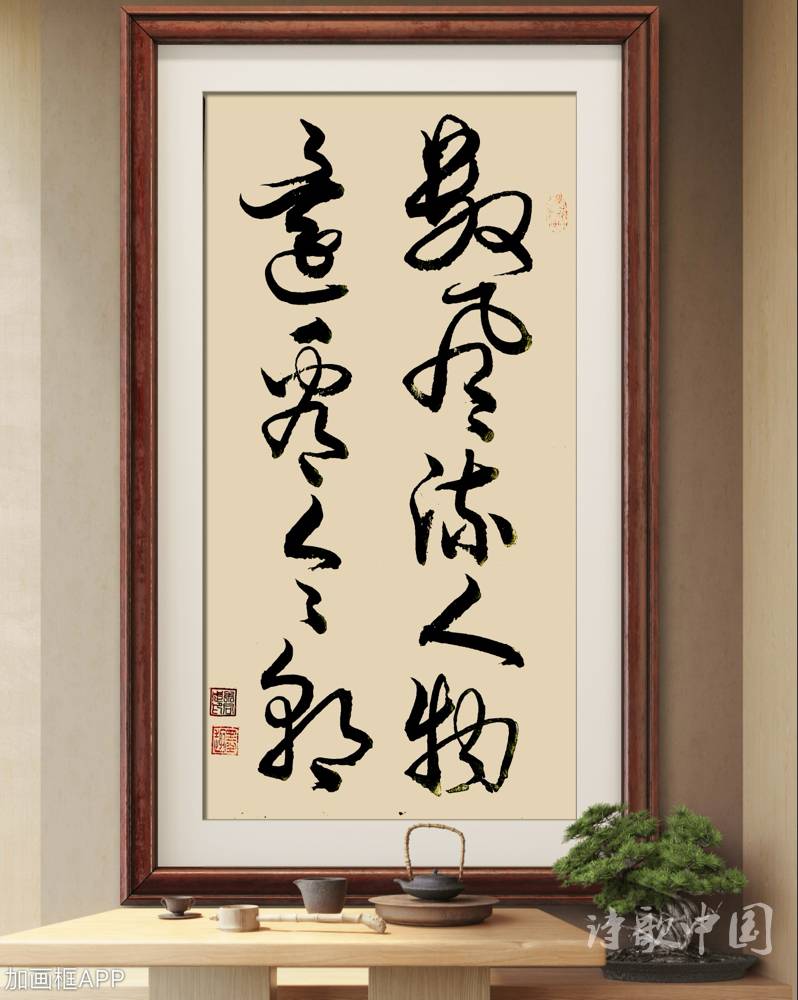 數風流人物
還看今朝
诗歌中国
加画框APP